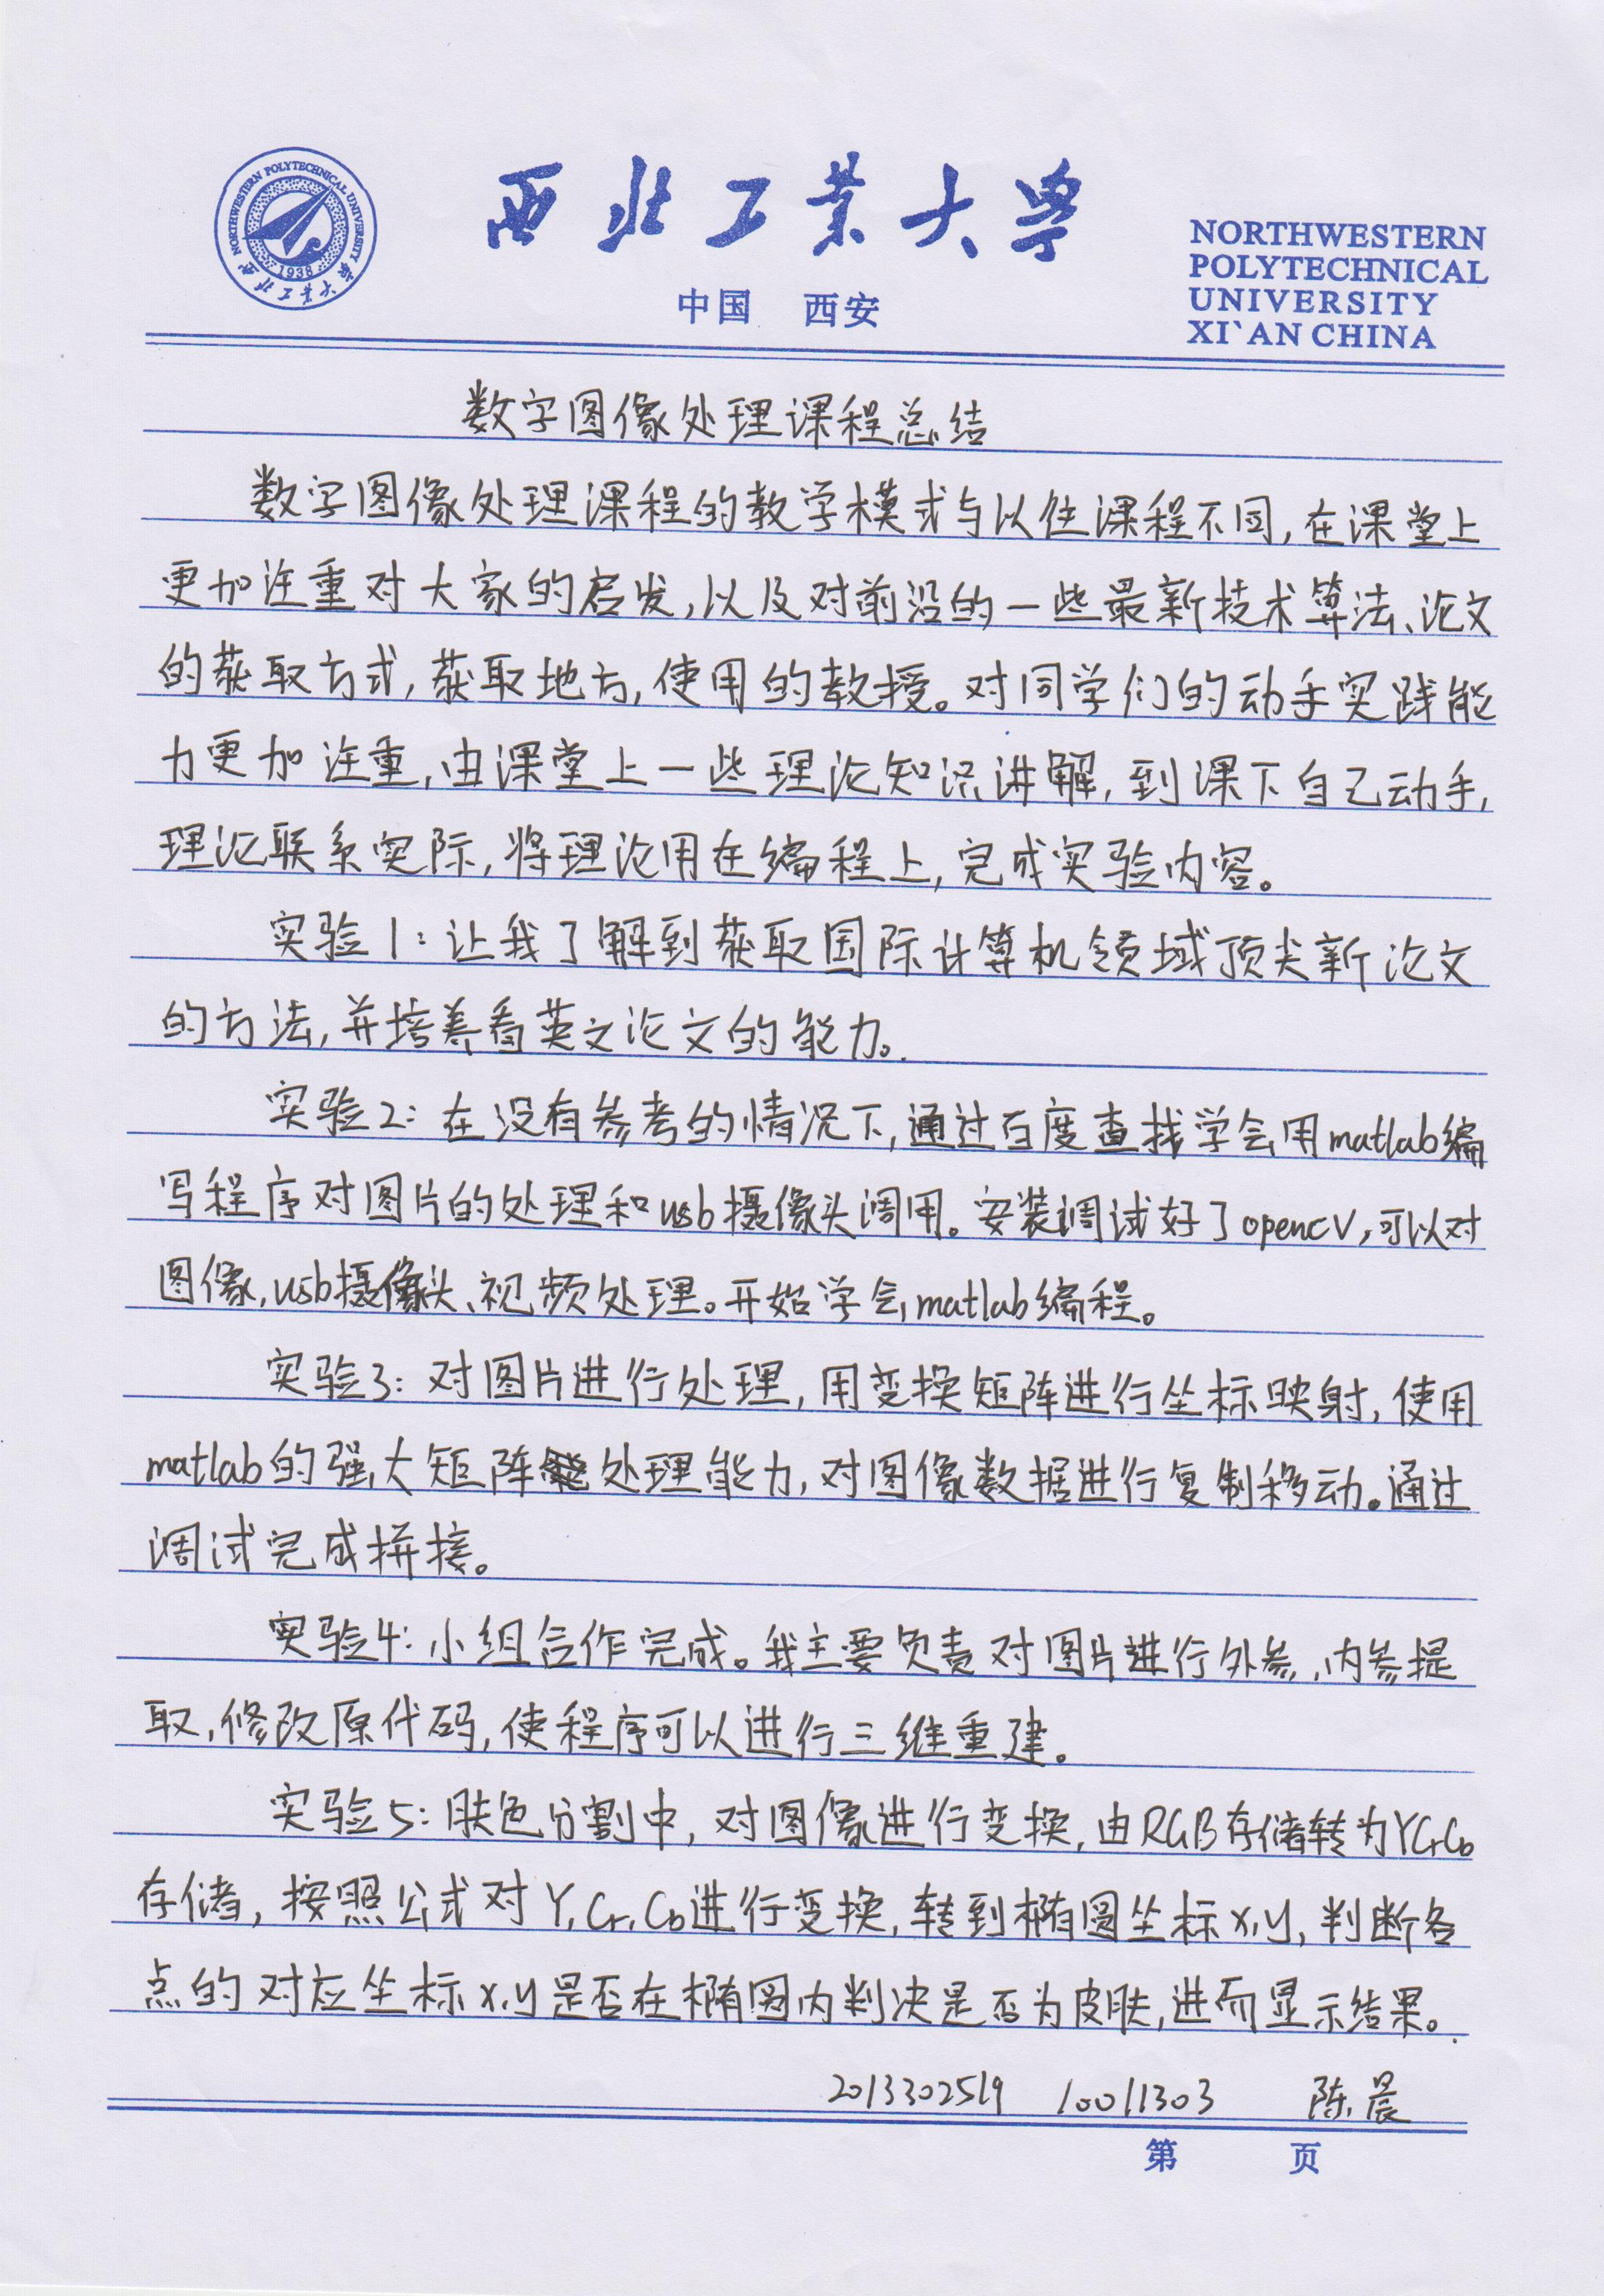 NORTHWESTERN POLYTECHNICAL UNIVERSITY
1938
西北工业大学
西北工业大学
中国 西安
NORTHWESTERN
POLYTECHNICAL
UNIVERSITY
XI`AN CHINA
数字图像处理课程总结
数字图像处理课程的教学模式与以往课程不同,在课堂上
更加注重对大家的启发,以及对前沿的一些最新技术算法、论文
的获取方式,获取地方,使用的教授。对同学们的动手实践能
力更加注重,由课堂上一些理论知识讲解,到课下自己动手,
理论联系实际,将理论用在编程上,完成实验内容。
实验1:让我了解到获取国际计算机领域顶尖新论文
的方法,并培养看英文论文的能力。
实验2:在没有参考的情况下,通过百度查找学会用matlab编
写程序对图片的处理和usb摄像头调用。安装调试好了opencv,可以对
图像,usb摄像头、视频处理。开始学会matlab编程。
实验3:对图片进行处理,用变换矩阵进行坐标映射,使用
matlab的强大矩阵处理能力,对图像数据进行复制移动。通过
调试完成拼接。
实验4:小组合作完成。我主要负责对图片进行外参,内参提
取,修改原代码,使程序可以进行三维重建。
实验5:肤色分割中,对图像进行变换,由RGB存储转为YCrCb
存储,按照公式对Y,Cr,Cb进行变换,转到椭圆坐标x,y,判断各
点的对应坐标x,y是否在椭圆内判决是否为皮肤,进而显示结果。
2013302519 10011303 陈晨
第 页